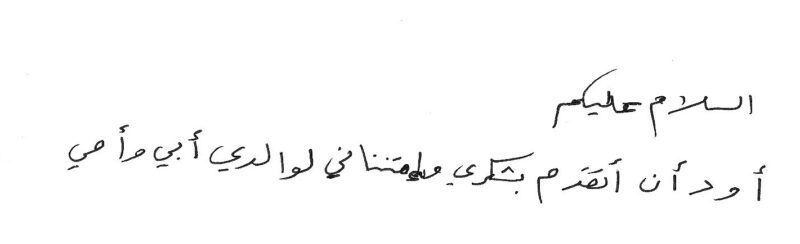 السلام عليكم
أود أن أتقدم بشكري وامتناني لوالدي أبي وأمي